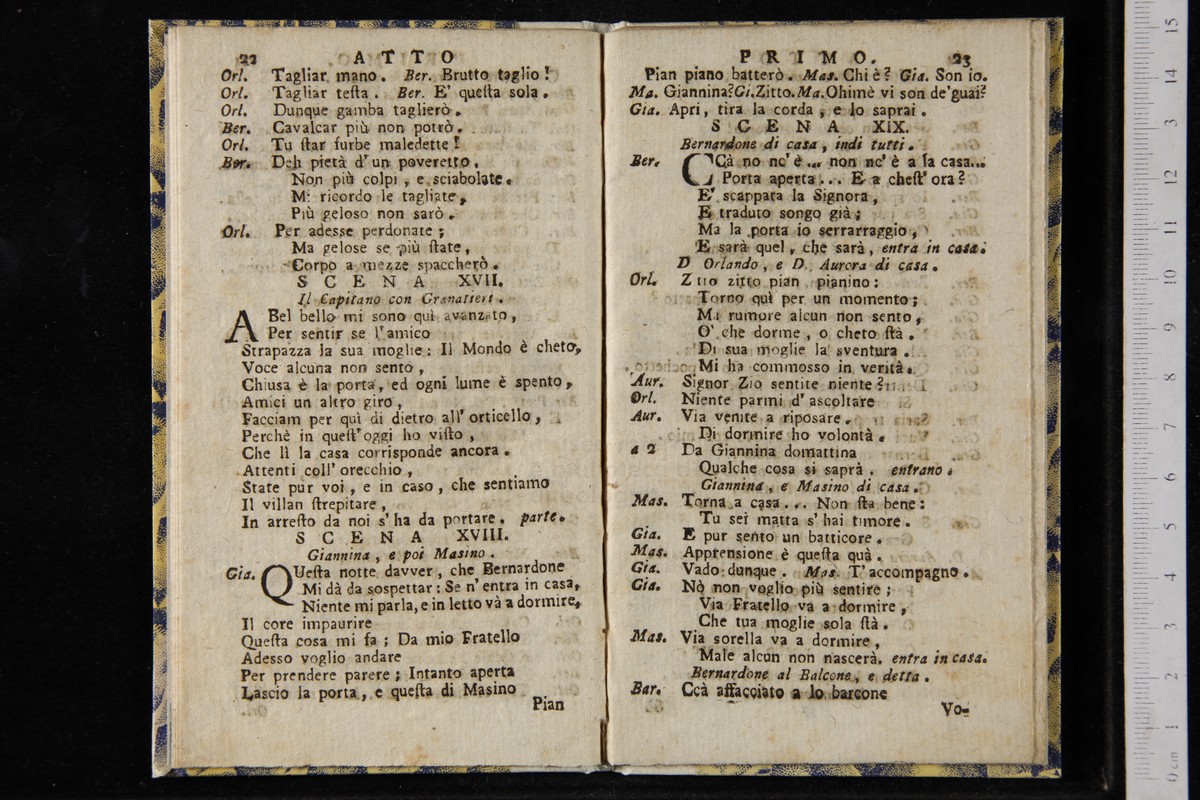 22 ATTO
Orl. Tagliar mano. Ber. Brutto taglio!
Orl. Tagliar teſta. Ber. E' queſta sola.
Orl. Dunque gamba taglierò.
Ber. Cavalcar più non potrò.
Orl. Tu ſtar furbe maledette!
Ber. Deh pietà d'un poveretto,
Non più colpi, e sciabolate.
Mi ricordo le tagliate,
Più geloso non sarò.
Orl. Per adesse perdonate;
Ma gelose se più ſtate,
Corpo a mezze spaccherò.
SCENA XVII.
Il Capitano con Granatieri.
ABel bello mi sono quì avanzato,
Per sentir se l'amico
Strapazza la sua moglie: Il Mondo è cheto,
Voce alcuna non sento,
Chiusa è la porta, ed ogni lume è spento,
Amici un altro giro,
Facciam per quì di dietro all' orticello,
Perchè in queſt'oggi ho viſto,
Che lì la casa corrisponde ancora.
Attenti coll' orecchio,
State pur voi, e in caso, che sentiamo
Il villan ſtrepitare,
In arreſto da noi s'ha da portare. parte.
SCENA XVIII.
Giannina, e poi Masino.
Gia. QUeſta notte davver, che Bernardone
Mi dà da sospettar: Se n'entra in casa,
Niente mi parla, e in letto và a dormire,
Il core impaurire
Queſta cosa mi fa; Da mio Fratello
Adesso voglio andare
Per prendere parere; Intanto aperta
Lascio la porta, e queſta di Masino
Pian
PRIMO. 23
Pian piano batterò. Mas. Chi è? Gia. Son io.
Ma. Giannina? Gi. Zitto. Ma. Ohimè vi son de'guai?
Gia. Apri, tira la corda, e lo saprai.
SCENA XIX.
Bernardone di casa, indi tutti.
Ber. CCà no nc'è... non nc'è a la casa...
Porta aperta... E a cheſt' ora?
E' scappata la Signora,
E traduto songo già;
Ma la porta io serrarraggio,
E sarà quel, che sarà, entra in casa.
D Orlando, e D. Aurora di casa.
Orl. Zitto zitto pian pianino:
Torno quì per un momento;
Ma rumore alcun non sento,
O' che dorme, o cheto ſtà.
Di sua moglie la sventura
Mi ha commosso in verità.
Aur. Signor Zio sentite niente?
Orl. Niente parmi d'ascoltare
Aur. Via venite a riposare.
Di dormire ho volontà.
a 2 Da Giannina domattina
Qualche cosa si saprà. entrano.
Giannina, e Masino di casa.
Mas. Torna a casa... Non ſta bene:
Tu sei matta s'hai timore.
Gia. E pur sento un batticore.
Mas. Apprensione è queſta quà.
Gia. Vado dunque. Mas. T'accompagno.
Gia. Nò non voglio più sentire;
Via Fratello va a dormire,
Che tua moglie sola ſtà.
Mas. Via sorella va a dormire,
Male alcun non nascerà. entra in casa.
Bernardone al Balcone, e detta.
Bar. Ccà affacciato a lo barcone
Vo-